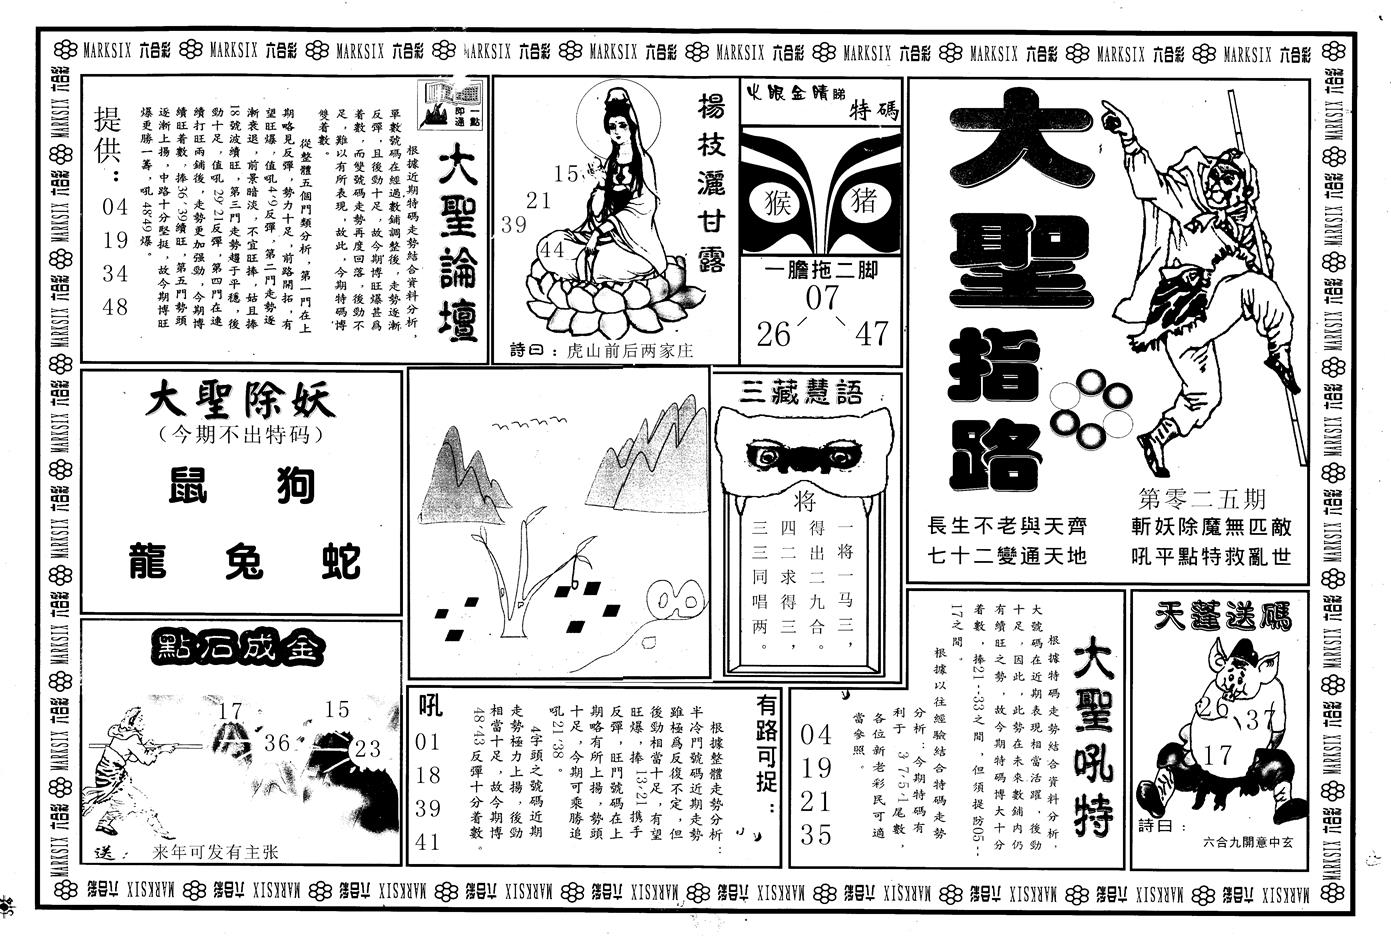 MARKSIX 六合彩 MARKSIX 六合彩 MARKSIX 六合彩 MARKSIX 六合彩 MARKSIX 六合彩 MARKSIX 六合彩 MARKSIX 六合彩 MARKSIX 六合彩 MARKSIX 六合彩 MARKSIX 六合彩
大聖指路
第零二五期
長生不老與天齊
七十二變通天地
斬妖除魔無匹敵
吼平點特救亂世
火眼金睛睇
特碼
猴
猪
一膽拖二脚
07
26
47
楊枝灑甘露
15
21
39
44
詩曰：虎山前后两家庄
一點即通
大聖論壇
根據近期特碼走勢結合資料分析，
單數號碼在經過數鋪調整後，走勢逐漸
反彈，且後勁十足，故今期博旺爆甚爲
着數，而雙號碼走勢再度回落，後勁不
足，難以有所表現，故此，今期特碼博
雙着數。
從整體五個門類分析，第一門在上
期略見反彈，勢力十足，前路開拓，有
望旺爆，值吼4·9反彈，第二門走勢逐
漸衰退，前景暗淡，不宜旺捧，姑且捧
18號波續旺，第三門走勢趨于平穩，後
勁十足，值吼29·21反彈，第四門在連
續打旺兩鋪後，走勢更加强勁，今期博
續旺着數，捧36·39續旺，第五門勢頭
逐漸上揚，中路十分堅挺，故今期博旺
爆更勝一籌，吼48·49爆。
提供：
04
19
34
48
大聖除妖
（今期不出特码）
鼠 狗
龍 兔 蛇
三藏慧語
将
一将一马三，
得出二九合。
四二求得三，
三三同唱两。
點石成金
17
36
15
23
送： 来年可发有主张
有路可捉：
根據整體走勢分析：
半冷門號碼近期走勢
雖極爲反復不定，但
後勁相當十足，有望
旺爆，捧13·21携手
反彈，旺門號碼在上
期略有所上揚，勢頭
十足，今期可乘勝追
吼21·38。
4字頭之號碼近期
走勢極力上揚，後勁
相當十足，故今期博
48·43反彈十分着數。
吼
01
18
39
41
大聖吼特
根據特碼走勢結合資料分析，
大號碼在近期表現相當活躍，後勁
十足，因此，此勢在未來數鋪内仍
有續旺之勢，故今期特碼博大十分
着數，捧21--33之間，但須提防05--
17之間。
根據以往經驗結合特碼走勢
分析：今期特碼有
利于 3·7·5·1尾數，
各位新老彩民可適
當參照。
04
19
21
35
天蓬送碼
26
37
17
詩曰：
六合九開意中玄